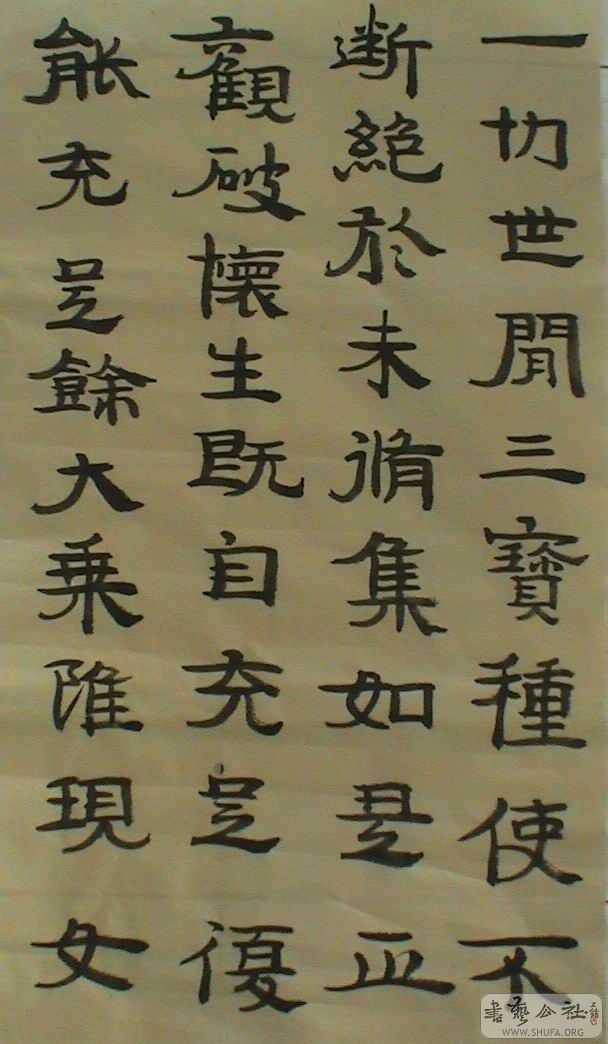 一切世閒三寶種使不
斷絶於未脩集如是正
觀破懷生既自充足復
能充足餘大乗雖現女
書藝公社
WWW.SHUFA.ORG